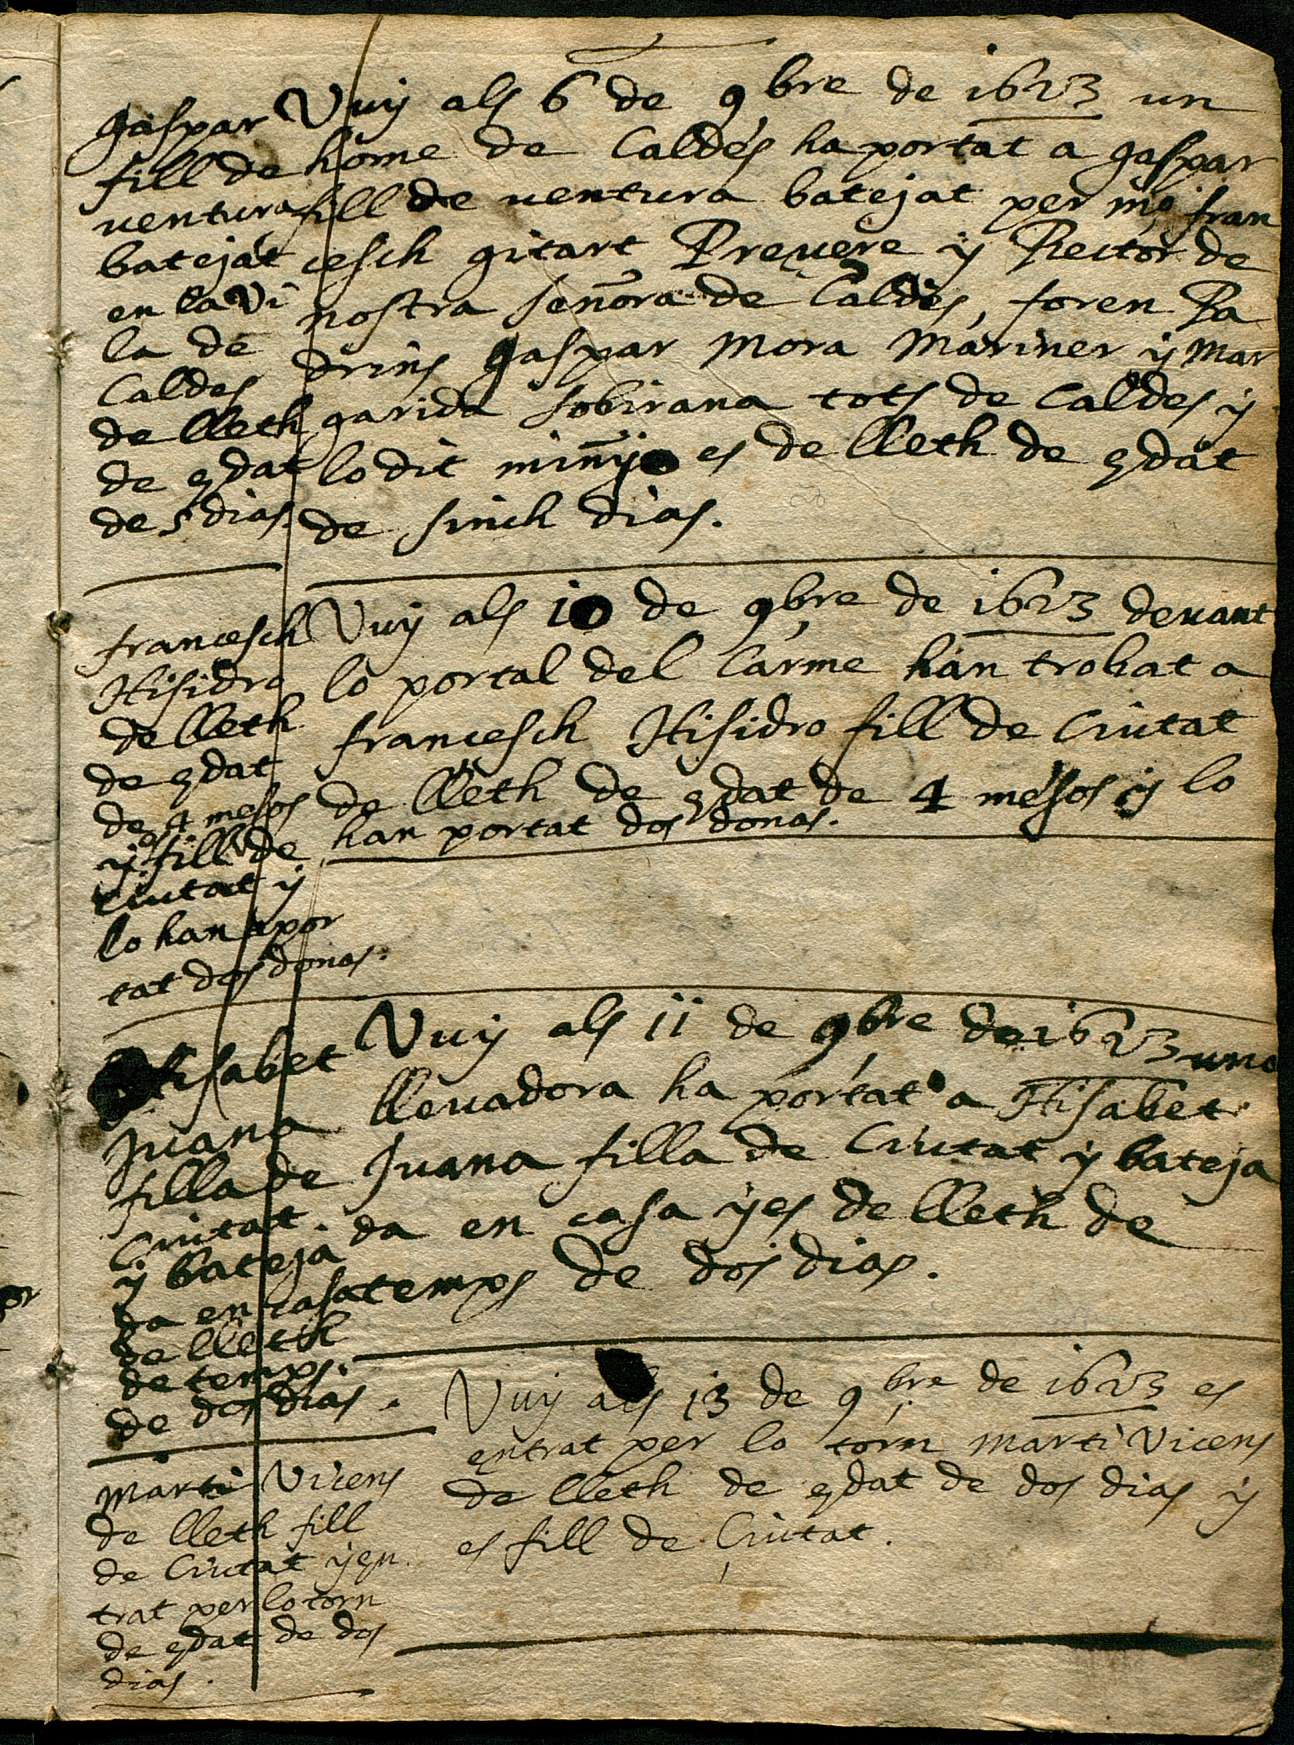 gaspar
fill de
ventura
batejat
en la vi
la de
Caldes
de lleth
de edat
de 5 dias
Vuy als 6 de 9bre de 1623 un
home de Caldes ha portat a gaspar
fill de ventura batejat per mo fran
cesch gitart Prevere y Rector de
nostra señora de Caldes, foren Pa
drins gaspar Mora Mariner y Mar
garida sobirana tots de Caldes y
lo dit minyo es de lleth de edat
de sinch dias.
francesch
Hisidro
de lleth
de edat
de 4 mesos
y fill de
Ciutat y
lo han apor
tat dos donas.
Vuy als 10 de 9bre de 1623 devant
lo portal del Carme han trobat a
francesch Hisidro fill de Ciutat
de lleth de edat de 4 mesos y lo
han portat dos donas.
Hisabet
Juana
filla de
Ciutat
y bateja
da en casa
de lleth
de temps
de dos dias.
Vuy als 11 de 9bre de 1623 una
llevadora ha portat a Hisabet
Juana filla de Ciutat y bateja
da en casa y es de lleth de
temps de dos dias.
Marti Vicens
de lleth fill
de Ciutat y en
trat per lo torn
de edat de dos
dias.
Vuy als 13 de 9bre de 1623 es
entrat per lo torn Marti Vicens
de lleth de edat de dos dias y
es fill de Ciutat.